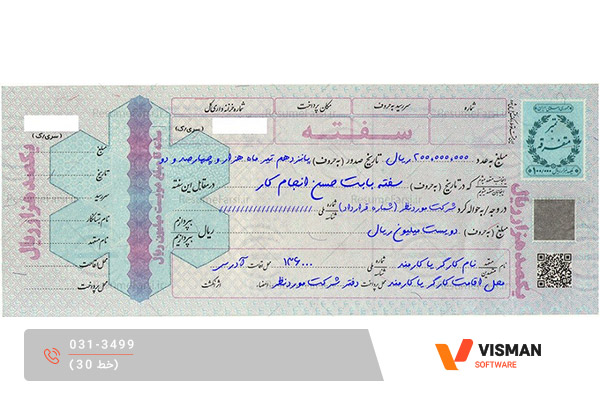 شماره
سررسید به حروف
مکان پرداخت
شماره خزانه داری کل
سفته
مبلغ به عدد ۲۰۰,۰۰۰,۰۰۰ ریال تاریخ صدور (به حروف) پانزدهم تیر ماه هزار و چهارصد و دو
که در تاریخ (به حروف) سفته بابت حسن انجام کار
در مقابل این سفته
در وجه / به حواله کرد شرکت مورد نظر (شماره قرارداد)
مبلغ (به حروف) دویست میلیون ریال
ریال
بپردازم
بپردازیم
نام کارگر یا کارمند
۱۳۶۰۰۰ محل اقامت آدرس
محل اقامت کارگر یا کارمند محل پرداخت دفتر شرکت مورد نظر امضاء، اثر انگشت
(سری/گ)
(سری/گ)
مبلغ
تاریخ
سررسید
نام بدهکار
نام متعهد
محل اقامت
محل پرداخت
یکصد هزار ریال
یکصد هزار ریال
تمبر
متفرقه
031-3499
(30 خط)
VISMAN
SOFTWARE